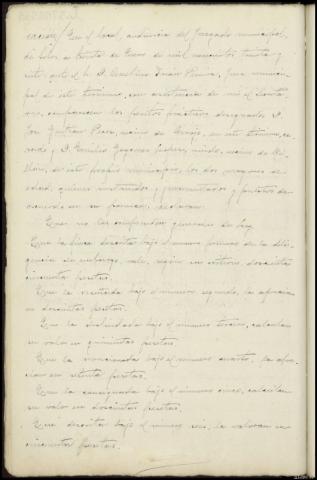 En el local, audiencia del Juzgado municipal
de a treinta de Enero de mil novecientos treinta y
siete, ante el Sr. D. Juan Juez munici-
pal de este término, con asistencia de mi el Secreta-
rio, comparecen los peritos prácticos designados D.
José vecino de en este término,
y D. Emilio viudo, vecino de
de este propio municipio, los dos mayores de
edad, quienes juramentados y
en su forma, declaran:
Que no les comprenden generales de ley.
Que la finca descrita bajo el número primero de la dili-
gencia de embargo, vale, según su criterio, doscientas
cincuenta pesetas.
Que la reseñada bajo el número segundo, la aprecian
en doscientas pesetas.
Que la deslindada bajo el número tercero, calculan
su valor en quinientas pesetas.
Que la mencionada bajo el número cuarto, la apre-
cian en setenta pesetas.
Que la consignada bajo el número cinco, calculan
su valor en doscientas pesetas.
Que descrita bajo el número seis, la valoran en
cincuenta pesetas.